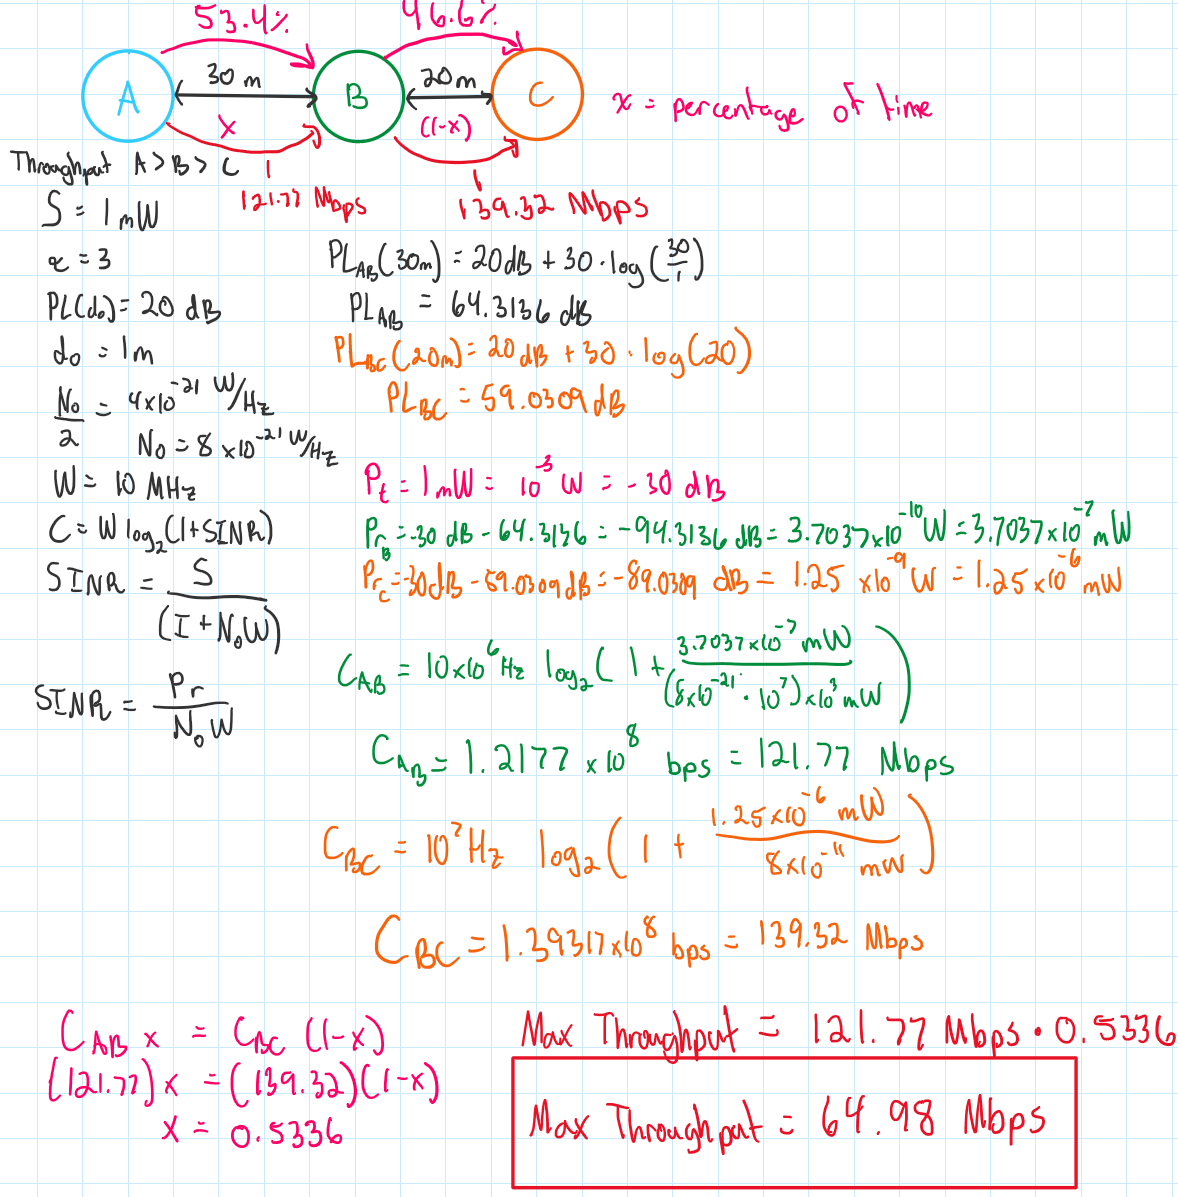 53.4% 46.6%
A 30 m B 20m C
x (1-x)
x = percentage of time
Throughput A > B > C
121.77 Mbps 139.32 Mbps
S = 1 mW
α = 3
PL(d₀) = 20 dB
d₀ = 1m
N₀/2 = 4x10⁻²¹ W/Hz
N₀ = 8x10⁻²¹ W/Hz
W = 10 MHz
C = W log₂(1+SINR)
SINR = S/(I + N₀W)
SINR = Pr/N₀W
PL_AB(30m) = 20dB + 30·log(30/1)
PL_AB = 64.3136 dB
PL_BC(20m) = 20dB + 30·log(20)
PL_BC = 59.0309 dB
P_t = 1mW = 10⁻³ W = -30 dB
Pr_B = -30 dB - 64.3136 = -94.3136 dB = 3.7037x10⁻¹⁰ W = 3.7037x10⁻⁷ mW
Pr_C = -30dB - 59.0309 dB = -89.0309 dB = 1.25 x10⁻⁹ W = 1.25x10⁻⁶ mW
C_AB = 10x10⁶ Hz log₂(1 + 3.7037x10⁻⁷ mW/(8x10⁻²¹ · 10⁷)x10³ mW)
C_AB = 1.2177 x 10⁸ bps = 121.77 Mbps
C_BC = 10⁷ Hz log₂(1 + 1.25x10⁻⁶ mW/8x10⁻¹¹ mW)
C_BC = 1.39317x10⁸ bps = 139.32 Mbps
C_AB x = C_BC (1-x)
(121.77)x = (139.32)(1-x)
x = 0.5336
Max Throughput = 121.77 Mbps · 0.5336
Max Throughput = 64.98 Mbps